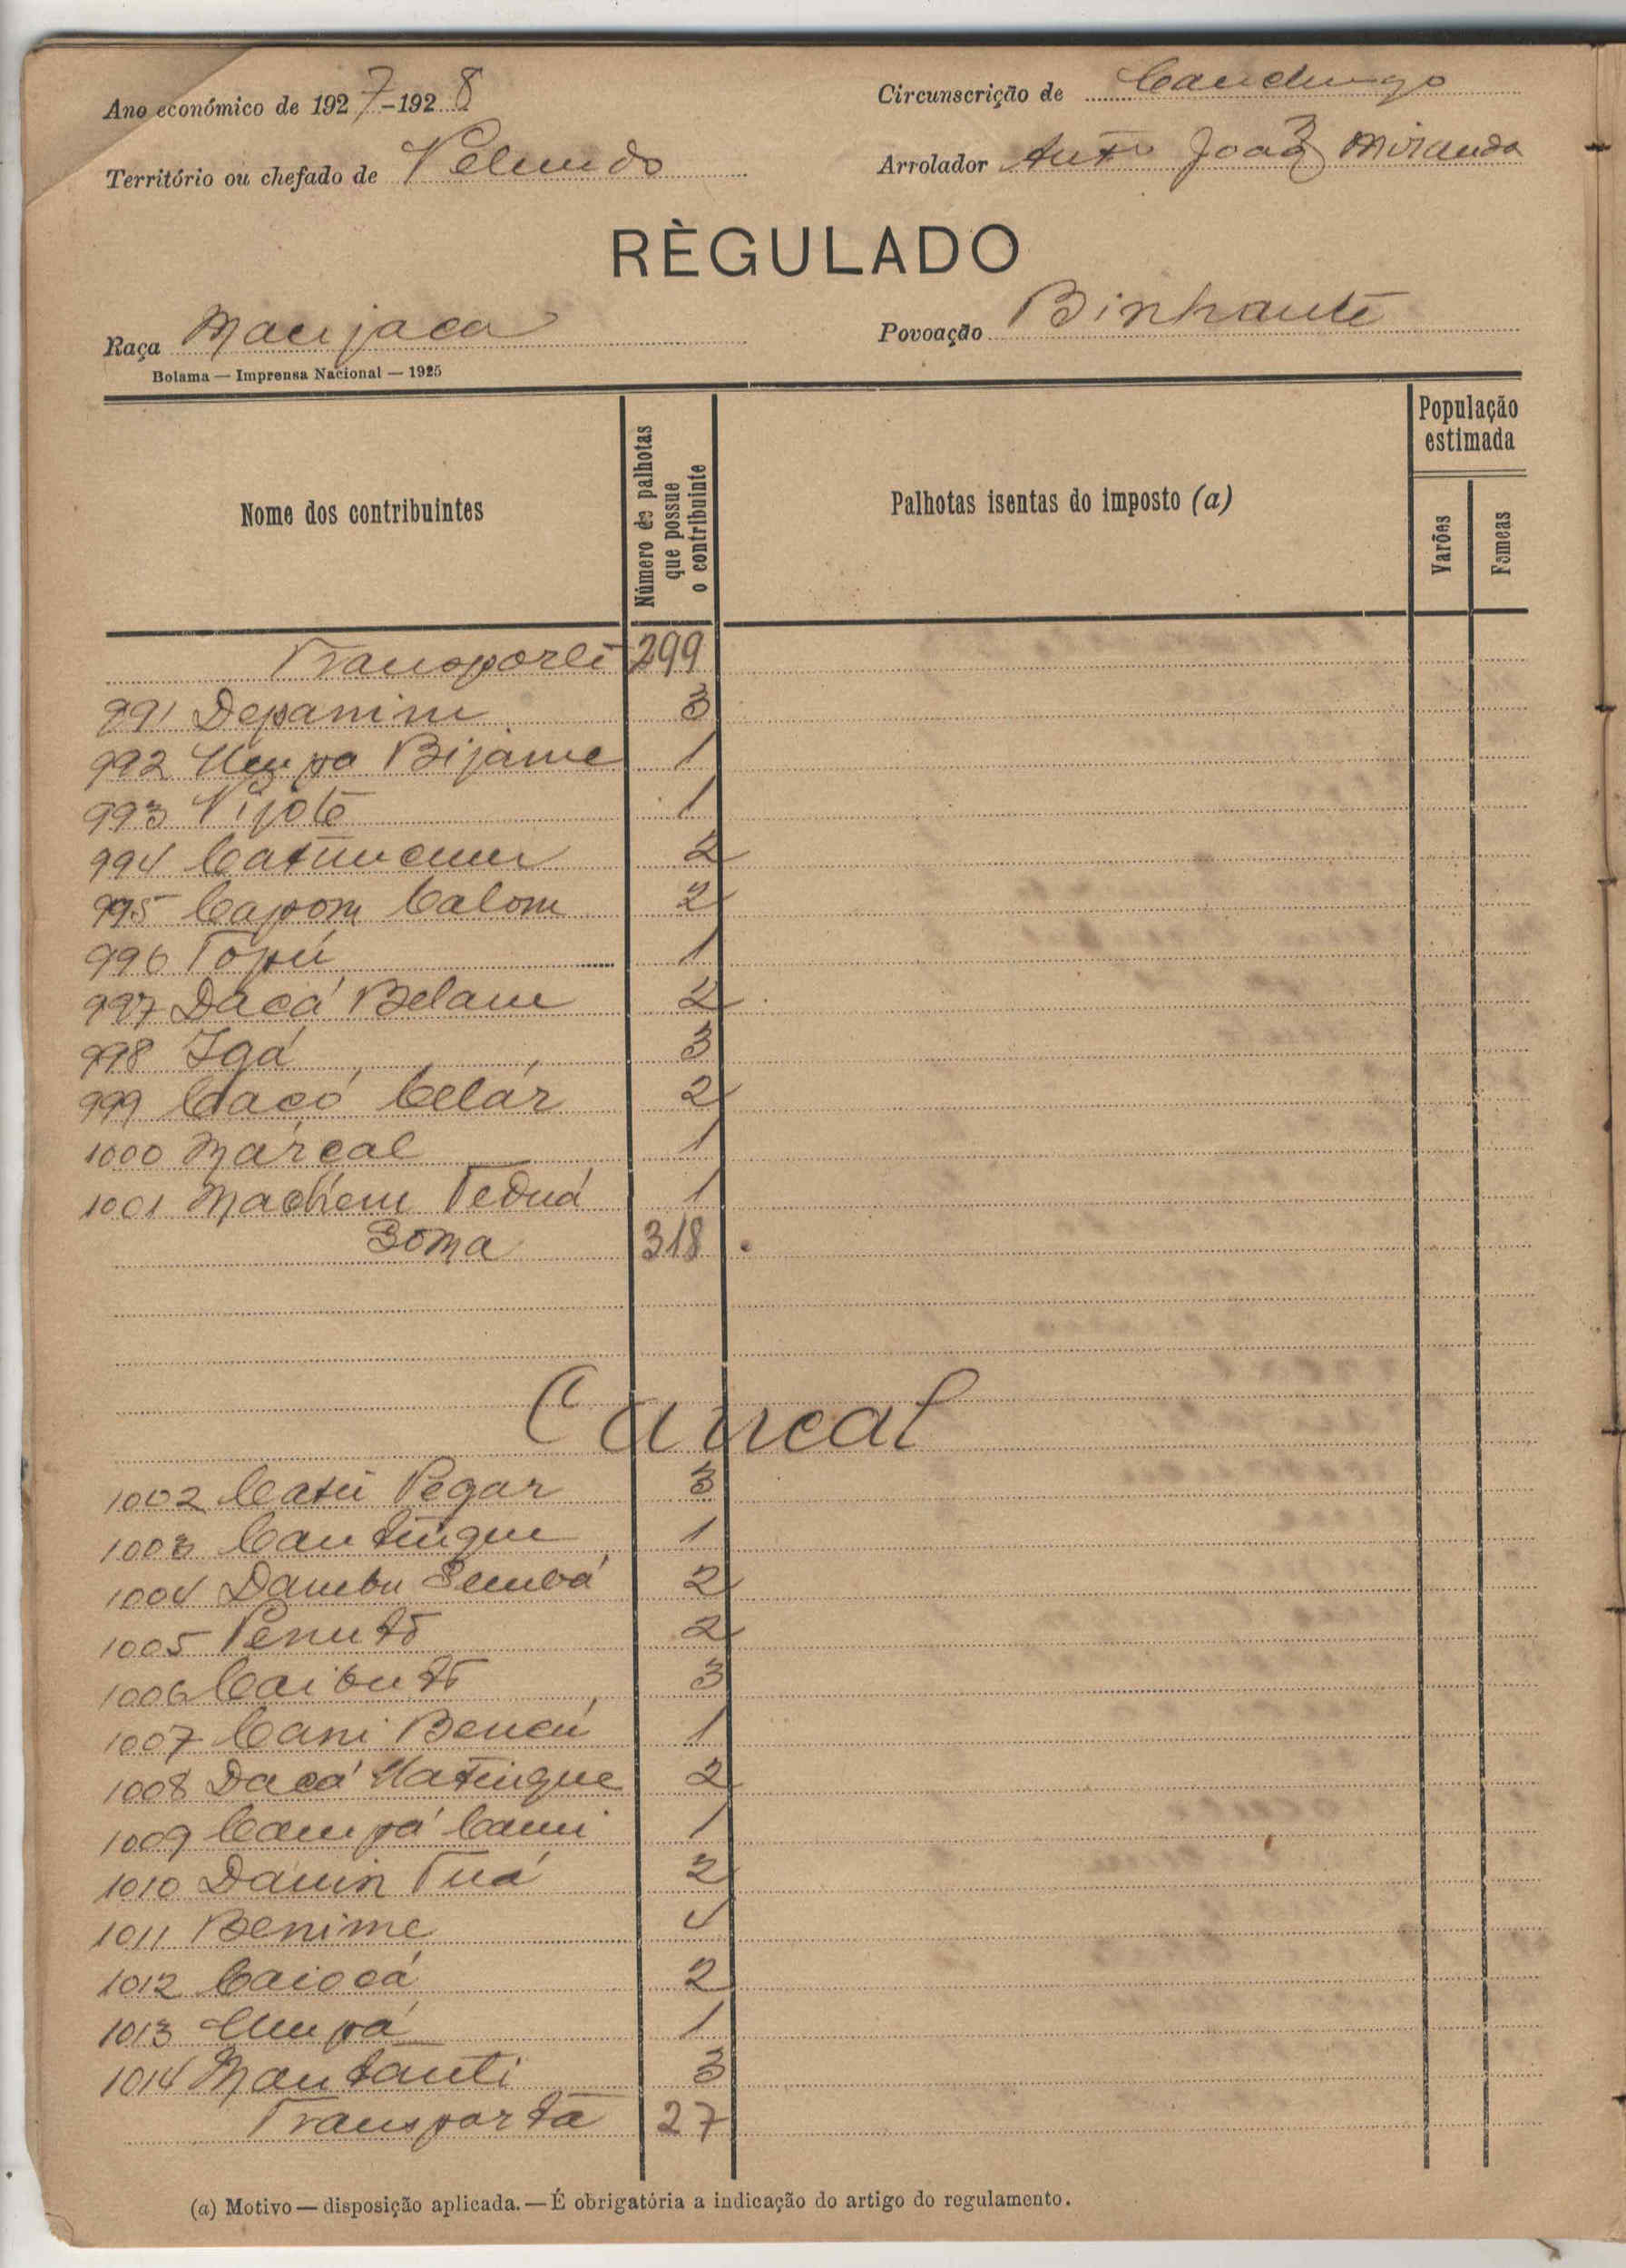 Ano económico de 1927-1928
Circunscrição de Canchungo
Território ou chefado de Pelundo
Arrolador Antº João Miranda
RÈGULADO
Raça Manjaca
Povoação Binhante
Bolama — Imprensa Nacional — 1925
Nome dos contribuintes
Número de palhotas que possue o contribuinte
Palhotas isentas do imposto (a)
População estimada
Varões
Femeas
Transporte 299
991 Depanim 3
992 Umpa Bijame 1
993 Vijote 1
994 2
995 Capom Calom 2
996 Topú 1
997 Dacá Belam 2
998 Igá 3
999 Cacó Celár 2
1000 Márcal 1
1001 Machem Teduá 1
Soma 318
Cancal
1002 Catú Pegar 3
1003 Cantingue 1
1004 Dambu 2
1005 Penutó 2
1006 Caibutó 3
1007 Cani Bencú 1
1008 Dacá Natingue 2
1009 Campá Cami 1
1010 Damin Tuá 2
1011 Benime 4
1012 Caiocá 2
1013 Umpá 1
1014 Mantanti 3
Transporta 27
(a) Motivo — disposição aplicada. — É obrigatória a indicação do artigo do regulamento.